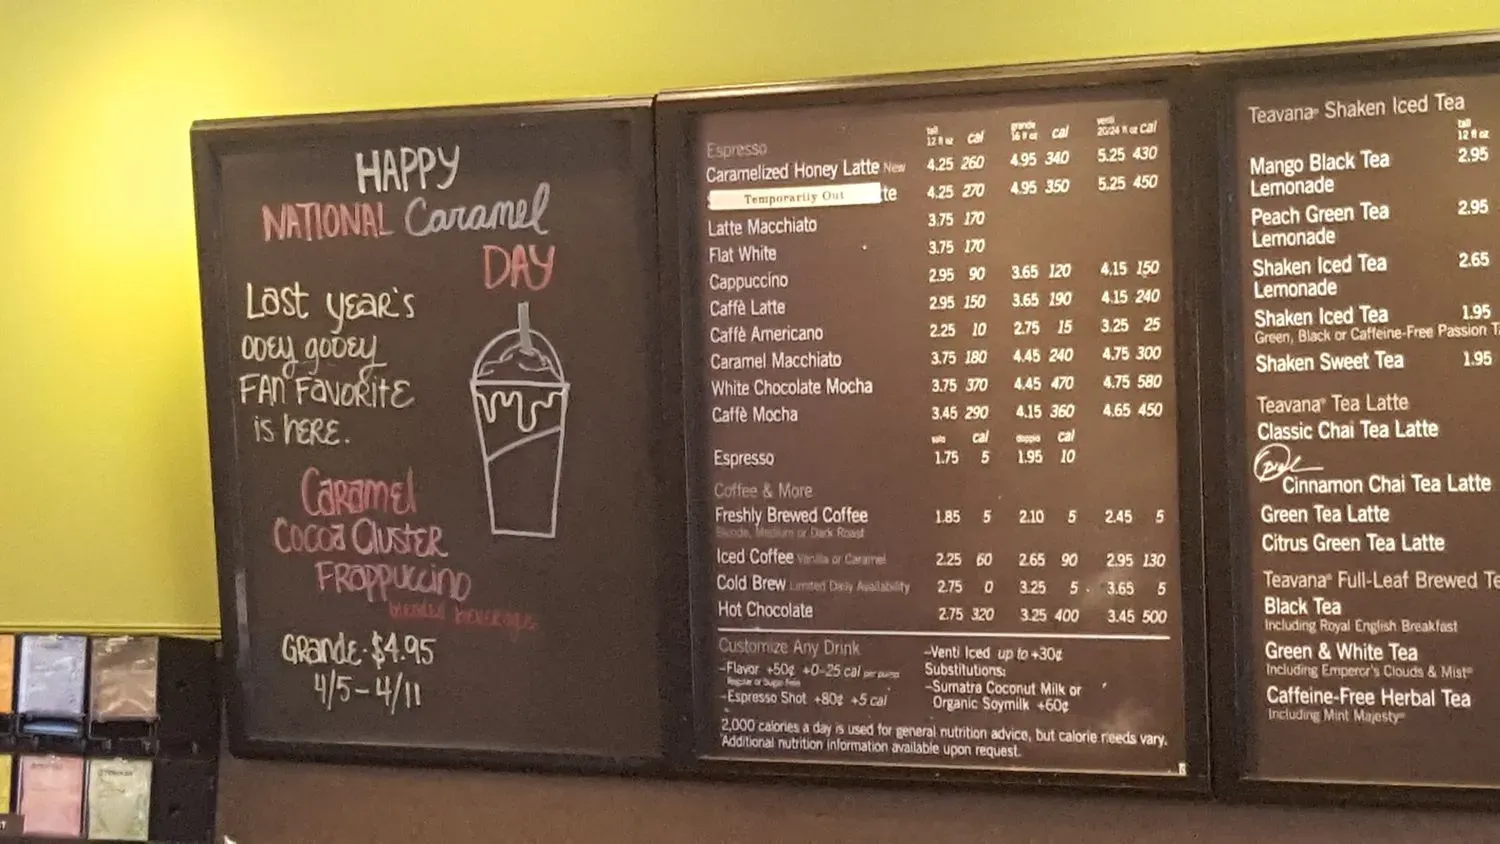 HAPPY
NATIONAL Caramel
DAY
Last year's
ooey gooey
FAN FAVORITE
is HERE.
CARAMEL
COCOA CLUSTER
FRAPPUCCINO
blended beverage
GRANDE-$4.95
4/5-4/11
tall 12 fl oz cal grande 16 fl oz cal venti 20/24 fl oz cal
Espresso
Caramelized Honey Latte New 4.25 260 4.95 340 5.25 430
Temporarily Out te 4.25 270 4.95 350 5.25 450
Latte Macchiato 3.75 170
Flat White 3.75 170
Cappuccino 2.95 90 3.65 120 4.15 150
Caffè Latte 2.95 150 3.65 190 4.15 240
Caffè Americano 2.25 10 2.75 15 3.25 25
Caramel Macchiato 3.75 180 4.45 240 4.75 300
White Chocolate Mocha 3.75 370 4.45 470 4.75 580
Caffè Mocha 3.45 290 4.15 360 4.65 450
solo cal doppio cal
Espresso 1.75 5 1.95 10
Coffee & More
Freshly Brewed Coffee 1.85 5 2.10 5 2.45 5
Blonde, Medium or Dark Roast
Iced Coffee Vanilla or Caramel 2.25 60 2.65 90 2.95 130
Cold Brew Limited Daily Availability 2.75 0 3.25 5 3.65 5
Hot Chocolate 2.75 320 3.25 400 3.45 500
Customize Any Drink
–Flavor +50¢ +0–25 cal per pump
Regular or Sugar Free
–Espresso Shot +80¢ +5 cal
–Venti Iced up to +30¢
Substitutions:
–Sumatra Coconut Milk or
Organic Soymilk +60¢
2,000 calories a day is used for general nutrition advice, but calorie needs vary.
Additional nutrition information available upon request.
Teavana® Shaken Iced Tea
tall
12 fl oz
Mango Black Tea 2.95
Lemonade
Peach Green Tea 2.95
Lemonade
Shaken Iced Tea 2.65
Lemonade
Shaken Iced Tea 1.95
Green, Black or Caffeine-Free Passion T
Shaken Sweet Tea 1.95
Teavana® Tea Latte
Classic Chai Tea Latte
Cinnamon Chai Tea Latte
Green Tea Latte
Citrus Green Tea Latte
Teavana® Full-Leaf Brewed Te
Black Tea
Including Royal English Breakfast
Green & White Tea
Including Emperor's Clouds & Mist®
Caffeine-Free Herbal Tea
Including Mint Majesty®